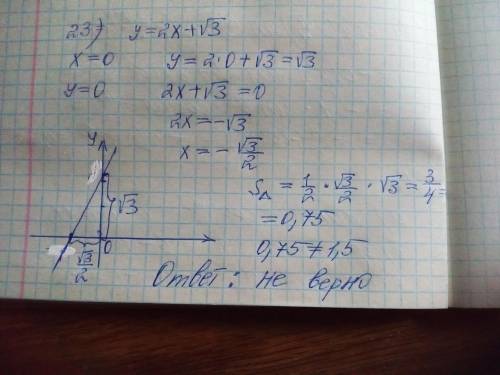 23) y=2x+√3
x=0 y=2·0+√3=√3
y=0 2x+√3=0
2x=-√3
x=-√3/2
y
√3
0
√3/2
S△ = 1/2 · √3/2 · √3 = 3/4 =
=0,75
0,75≠1,5
Ответ: не верно